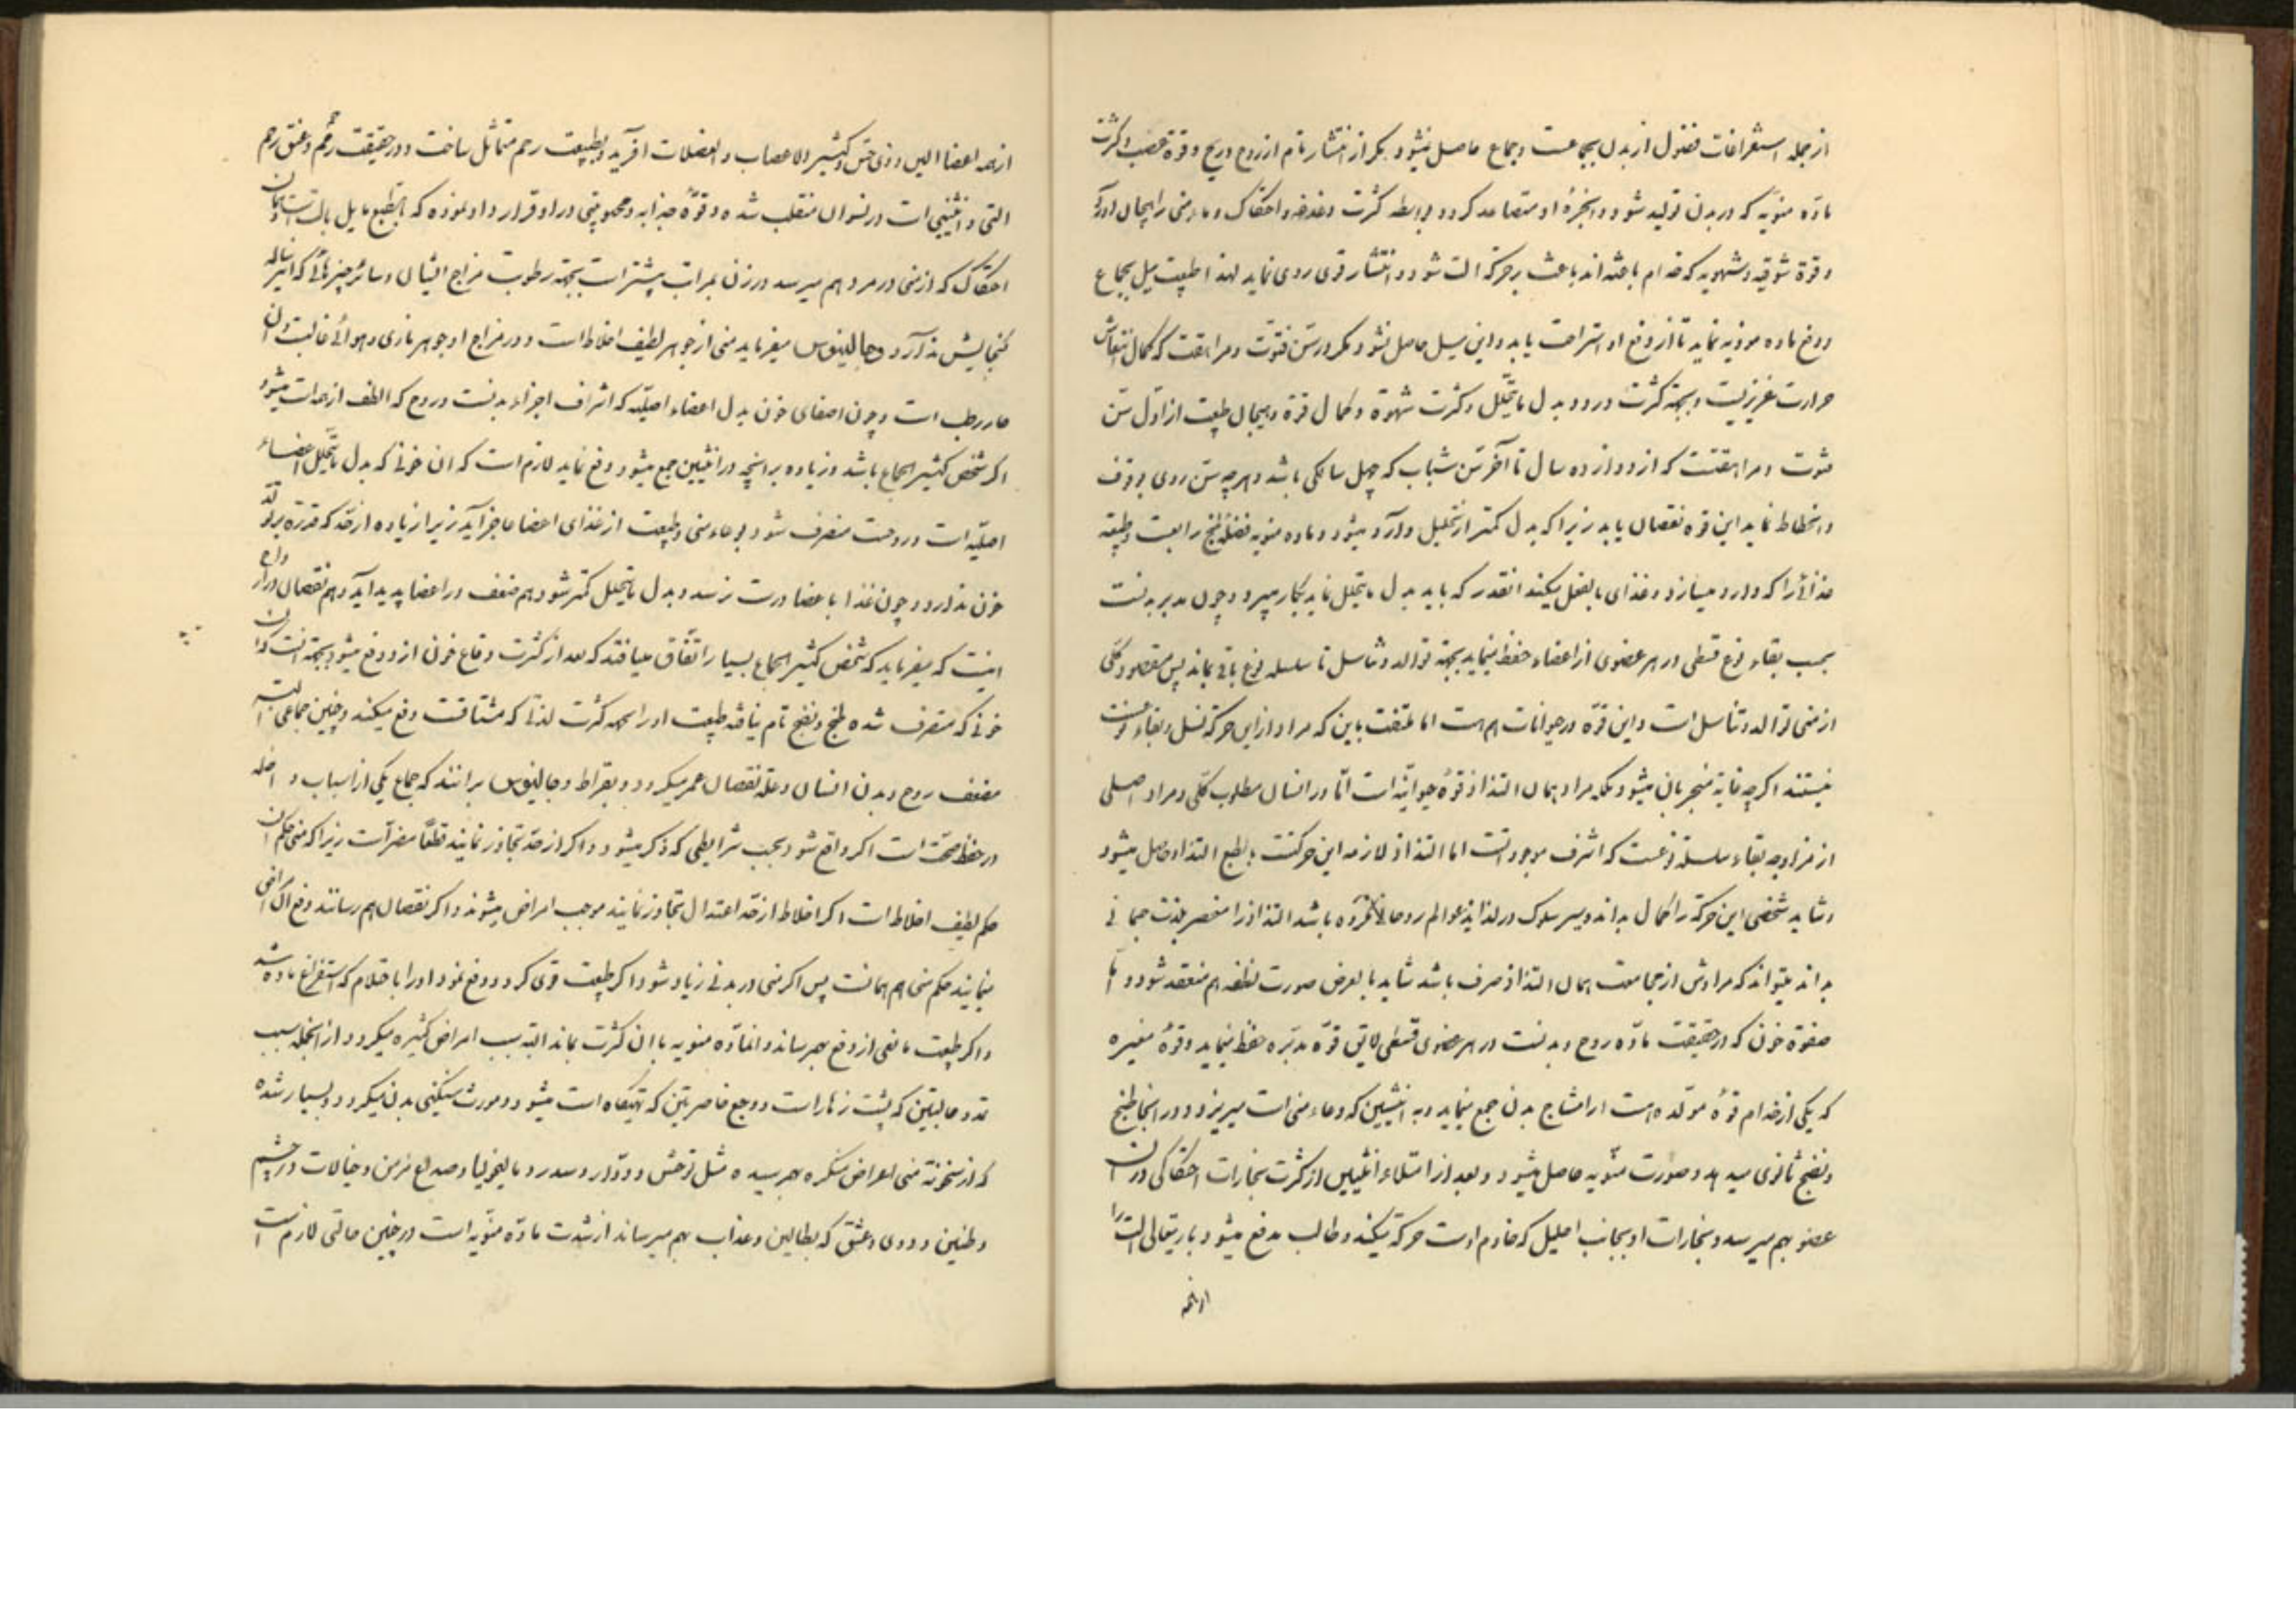 از جمله استفراغات فضول از بدن مجامعت و جماع حاصل نمیشود مگر از انتشار تام از روح و ریح و قوة عصب و کثرت
ماده منویه که در بدن تولید شود و ابخرهٔ او متصاعد کردد و بواسطه کثرت دغدغه و احتکاک وعاء منی را بهیجان آورد
و قوة شوقیه و شهویه که خدام باعثه اند باعث بر حرکة الت شود و انتشار قوی روی نماید لهذا طبیعت میل بجماع
و دفع ماده موذیه نماید تا از دفع او استراحت یابد و این میل حاصل نشود مکر در سن فتوت و مراهقت که کمال انتعاش
حرارت غریزیست و بجهة کثرت ورود بدل ما یتحلل و کثرت شهوة و کمال قوة و هیجان طبیعت از اول سن
فتوت و مراهقتست که از دوازده سال تا آخر سن شباب که چهل سالکی باشد و هر چه سن روی بوقوف
و انحطاط نماید این قوه نقصان یابد زیرا که بدل کمتر از تحلیل وارد میشود و ماده منویه فضلهٔ هضم رابعست و طبیعة
غذائی را که وارد میسازد و غذای بالفعل میکند انقدر که باید بدل ما یتحلل نماید بکار میبرد و چون مدبر بدنست
بحسب بقاء نوع قسطی در هر عضوی از اعضاء حفظ مینماید بجهة توالد و تناسل تا سلسله نوع باقی بماند پس مقصود کلی
از منی توالد و تناسل است و این قوة در حیوانات هم هست اما ملتفت باین که مراد از این حرکة نسل و بقاء نوعست
نیستند اکر چه غایة منجر بان میشود بلکه مراد همان التذاذ قوهٔ حیوانیه است اما در انسان مطلوب کلی و مراد اصلی
از مزاوجه بقاء سلسله نوعست که اشرف موجوداتست اما التذاذ لازمه این حرکتست بالطبع التذاذ حاصل میشود
و شاید شخصی این حرکة را کمال بداند و سیر سلوک در لذایذ عوالم روحانی نکرده باشد التذاذ را منحصر بلذت جسمانی
بداند میتواند که مرادش از مجامعت همان التذاذ صرف باشد شاید بالعرض صورت نطفه هم منعقد شود و اما
صفوة خون که در حقیقت ماده روح و بدنست در هر عضوی قسطی لایق قوة مدبره حفظ مینماید و قوهٔ مغیره
که یکی از خدام قوهٔ مولده است از امشاج بدن جمع مینماید و به انثیین که وعاء منی است میریزد و در انجا طبخ
و نضج ثانوی میدهد و صورت منویه حاصل میشود و بعد از امتلاء انثیین از کثرت بخارات احتکاکی در ان
عضو بهم میرسد و بخارات او بجانب احلیل که خادم اوست حرکة میکند و طالب مدفع میشود باریتعالی الت را
از همه
از همه اعضا الین و ذی حس و کثیر الاعصاب و العضلات آفرید و بطبیعت رحم متماثل ساخت و در حقیقت رحم و عنق رحم
التی و انثیینی است در نسوان منقلب شده و قوهٔ جذابه و محبوبیتی در او قرار داد نموده که بالطبع مایل بالت است و همان
احتکاک که از منی در مرد بهم میرسد در زن بمراتب بیشتر است بجهة رطوبت مزاج ایشان و سائر چیزهائی که این رساله
کنجایش ندارد و جالینوس میفرماید منی از جوهر لطیف اخلاط است و در مزاج او جوهر ناری و هوائی غالبست و ان
حار رطب است و چون اصفای خون بدل اعضاء اصلیه که اشرف اجزاء بدنست و روح که الطف از همه است میشود
اکر شخص کثیر الجماع باشد و زیاده بر انچه در انثیین جمع میشود دفع نماید لازم است که ان خونی که بدل ما یتحلل اعضاء
اصلیه است و روحست منصرف شود بوعاء منی و طبیعت از غذای اعضا عاجز آید زیرا زیاده از حد که قدرة بر تولد
خون ندارد و چون غذا باعضا درست نرسد و بدل ما یتحلل کمتر شود هم ضعف در اعضا پدید اید و هم نقصان در ارواح
اینست که میفرماید که شخص کثیر الجماع بسیار اتفاق میافتد که بعد از کثرت وقاع خون از او دفع میشود بجهة انست که ان
خونی که منصرف شده طبخ و نضج تام نیافته طبیعت او را بجهة کثرت لذتی که مشتاقست دفع میکند و چنین جماعی البته
مضعف روح و بدن انسان و علة نقصان عمر میکردد و بقراط و جالینوس برانند که جماع یکی از اسباب داخله
در حفظ صحت است اکر واقع شود بحسب شرایطی که ذکر میشود و اکر از حد تجاوز نمایند قطعا مضر است زیرا که منی حکم ان
حکم لطیف اخلاط است اکر اخلاط از حد اعتدال تجاوز نمایند موجب امراض میشوند و اکر نقصان بهم رسانند دفع ان امراض
مینمایند حکم منی هم همانست پس اکر منی در بدنی زیاد شود اکر طبیعت قوی کردد و دفع نمود او را باحتلام که استفراغ ماده شد
و اکر طبیعت مانعی از دفع بهمرساند و انماده منویه با ان کثرت بماند البته سبب امراض کثیره میکردد از انجمله سبب
تمدد حالبین که پشت زهار است و وجع خاصرتین که تهیکاه است میشود و مورث سنکینی بدن میکردد و بسیار شده
که از سخونة منی اعراض منکره بهمرسیده مثل توحش و دوار و سدر و مالیخولیا و صداع مزمن و خیالات در چشم
و طنین و دوی و عشق که بطالین و عذاب بهم میرساند از شدت ماده منویه است در چنین حالتی لازم است